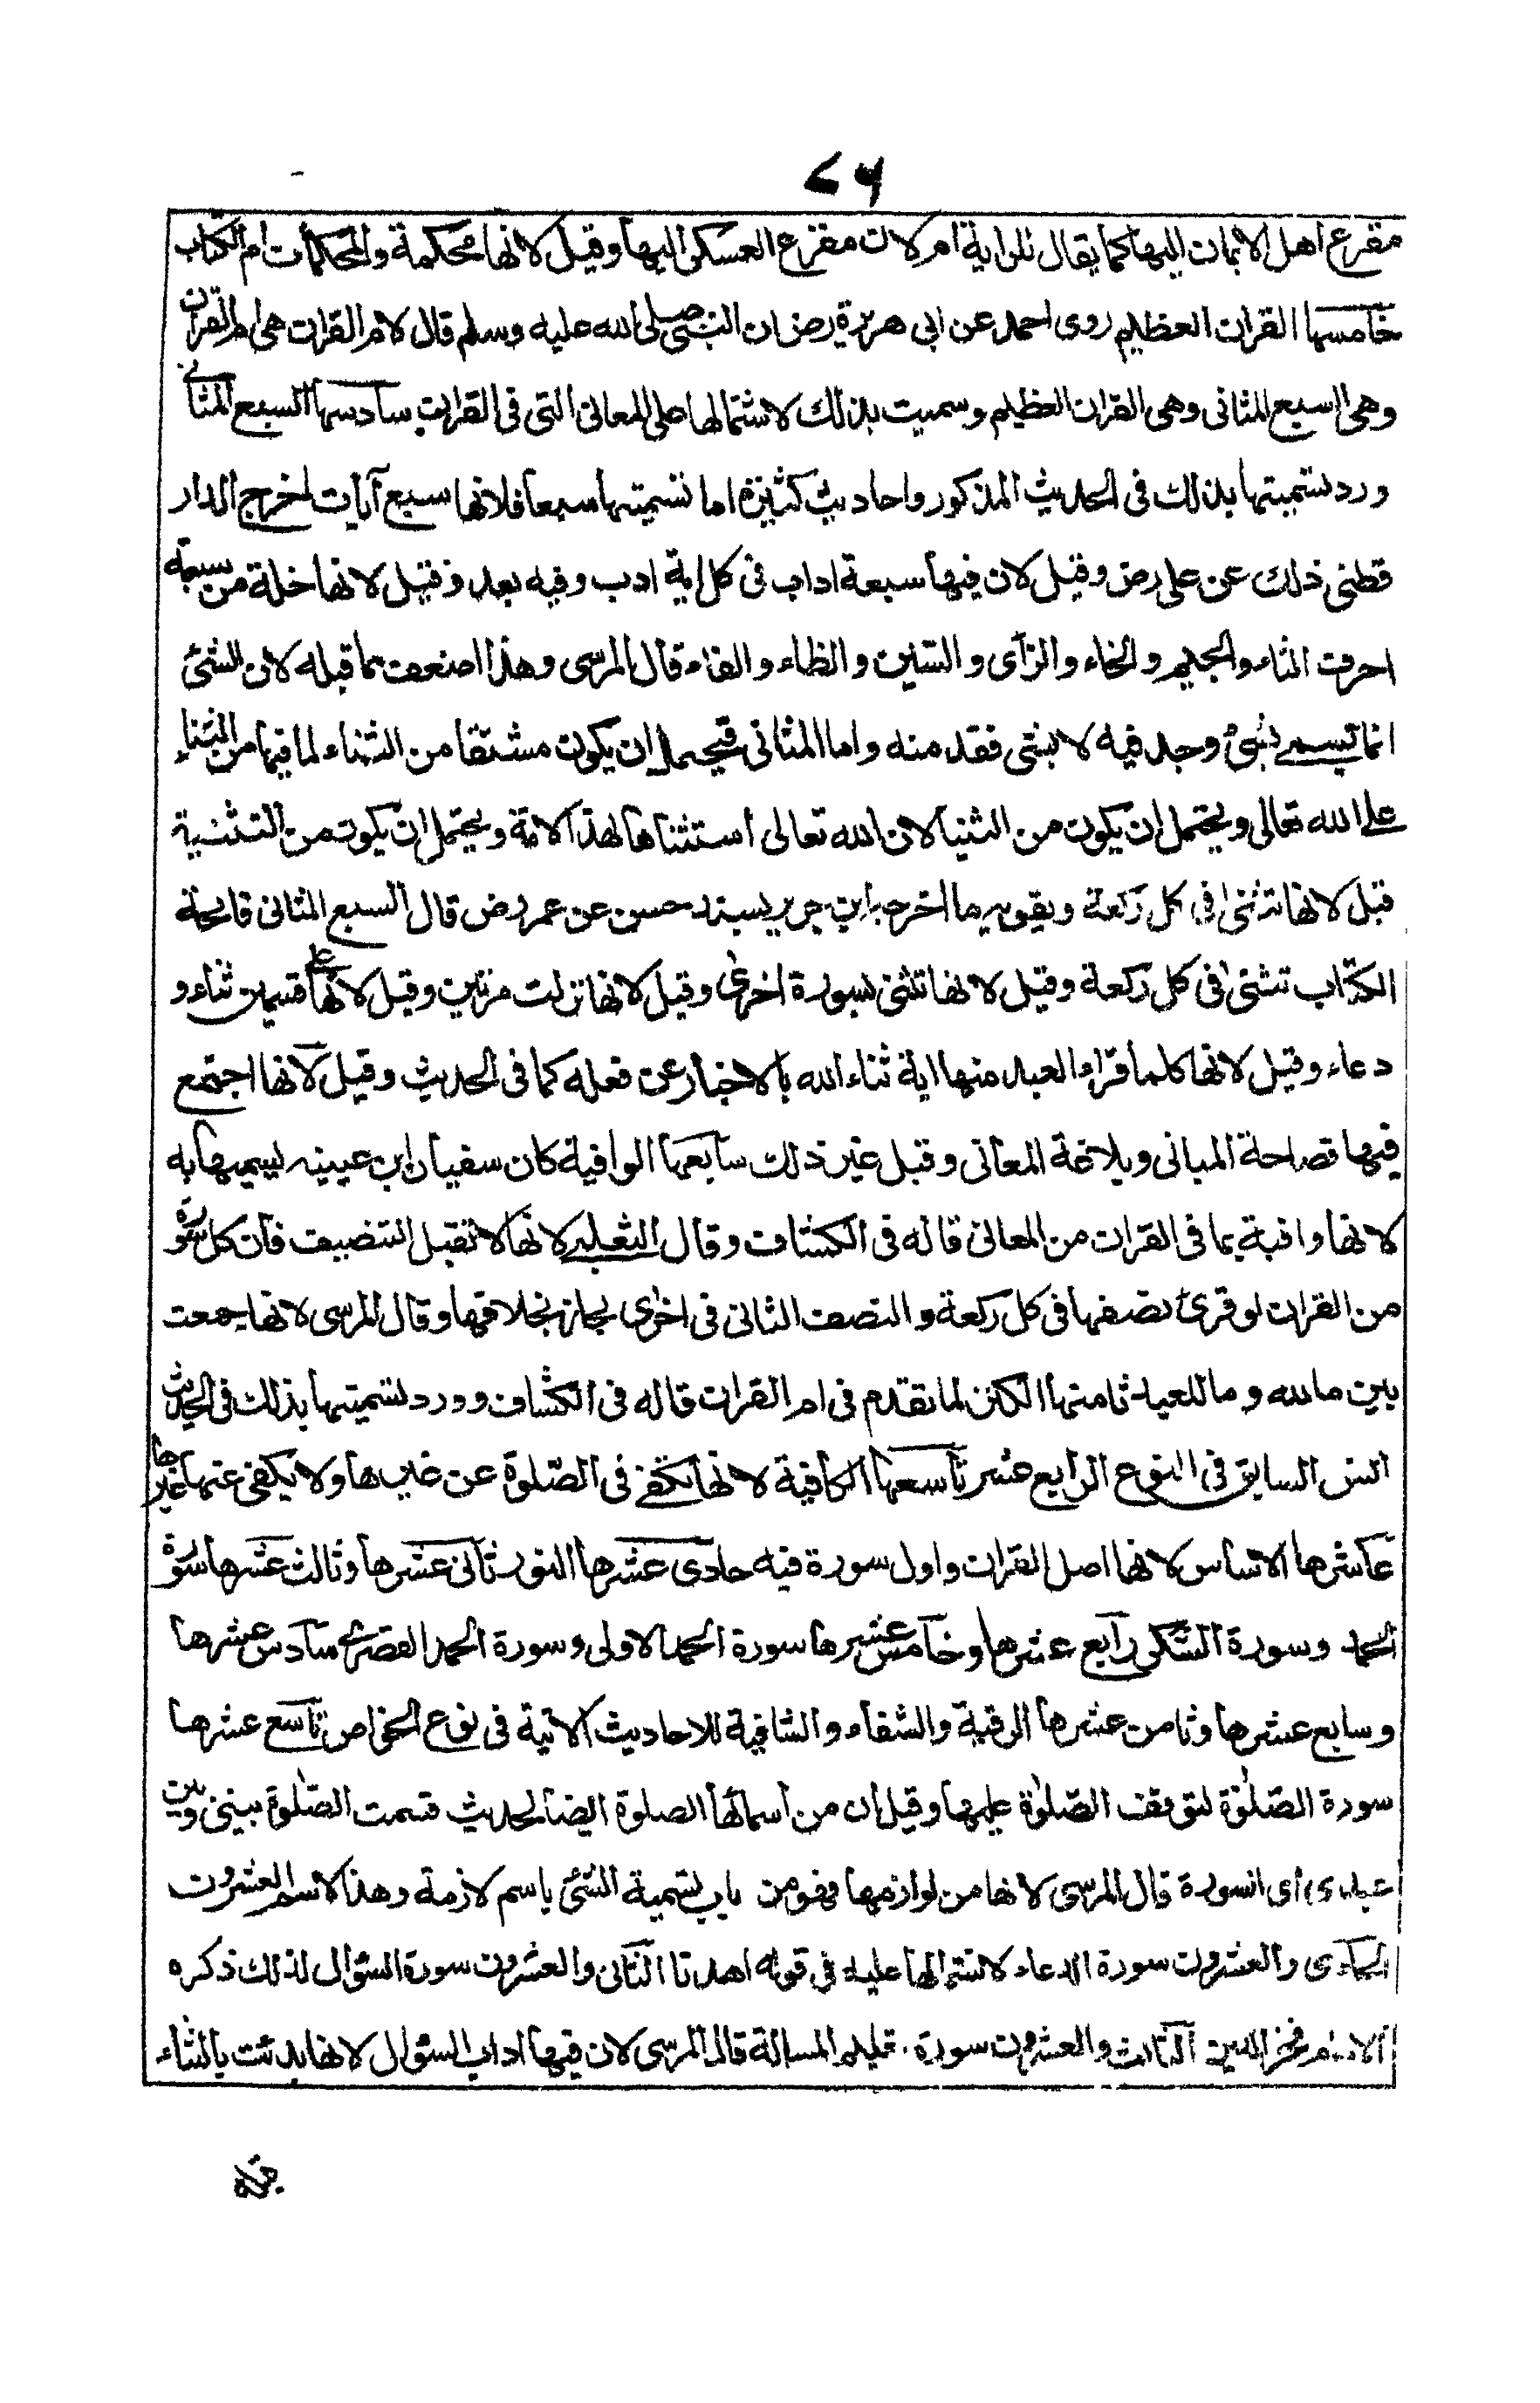 ٧٦
مفزع اهل الايمان اليها كما يقال للراية ام لان مفزع العسكر اليها وقيل لانها محكمة والمحكمات ام الكتاب
خامسها القران العظيم روى احمد عن ابى هريرة رض ان النبى صلى الله عليه وسلم قال لام القران هى ام القران
وهى السبع المثانى وهى القران العظيم وسميت بذلك لاشتمالها على المعانى التى فى القران سادسها السبع المثانى
ورد تسميتها بذلك فى الحديث المذكور واحاديث كثيرة اما تسميتها سبعا فلانها سبع آيات اخرج الدار
قطنى ذلك عن على رض وقيل لان فيها سبعة اداب فى كل اية ادب وفيه بعد وقيل لانها خلة من سبعة
احرف الثاء والجيم والخاء والزآى والشين والظاء والفاء قال المرسى وهذا اضعف مما قبله لان الشئ
انما يسمى بشئ وجد فيه لا بشى فقد منه واما المثانى فيحتمل ان يكون مشتقا من الثناء لما فيها من الثناء
على الله تعالى ويحتمل ان يكون من الثنيا لان الله تعالى استثناها لهذه الامة ويحتمل ان يكون من التثنية
قيل لانها تثنى فى كل ركعة ويقويه ما اخرجه ابن جرير بسند حسن عن عمر رض قال السبع المثانى فاتحة
الكتاب تثنى فى كل ركعة وقيل لانها تثنى بسورة اخرى وقيل لانها نزلت مرتين وقيل لانها على قسمين ثناء و
دعاء وقيل لانها كلما قراء العبد منها اية ثناء الله بالاخبار عن فعله كما فى الحديث وقيل لانها اجتمع
فيها فصاحة المبانى وبلاغة المعانى وقيل غير ذلك سابعها الوافية كان سفيان ابن عيينه يسميها به
لانها وافية بما فى القران من المعانى قاله فى الكشاف وقال الثعلبى لانها لا تقبل التنصيف فان كل سورة
من القران لو قرئ نصفها فى كل ركعة والنصف الثانى فى اخرى لجاز بخلافها وقال المرسى لانها جمعت
بين ما لله وما للعبد ثامنها الكنز لما تقدم فى ام القران قاله فى الكشاف وورد تسميتها بذلك فى الحديث
انس السابق فى النوع الرابع عشر تاسعها الكافية لانها تكفى فى الصلوة عن غيرها ولا يكفى عنها غيرها
عاشرها الاساس لانها اصل القران واول سورة فيه حادى عشرها النور ثانى عشرها وثالث عشرها سورة
الحمد وسورة الشكر رابع عشرها وخامس عشرها سورة الحمد الاولى وسورة الحمد القصرى سادس عشرها
وسابع عشرها وثامن عشرها الرقية والشفاء والشافية للاحاديث الاتية فى نوع الخواص تاسع عشرها
سورة الصلوة لتوقف الصلوة عليها وقيل ان من اسمائها الصلوة ايضا لحديث قسمت الصلوة بينى وبين
عبدى اى السورة قال المرسى لانها من لوازمها فهو من باب تسمية الشئ باسم لازمة وهذا الاسم العشرون
الحادى والعشرون سورة الدعاء لاشتمالها عليه فى قوله اهدنا الثانى والعشرون سورة السؤال لذلك ذكره
الامام فخر الدين الثالث والعشرون سورة تعليم المسالة قال المرسى لان فيها اداب السؤال لانها بدئت بالثناء